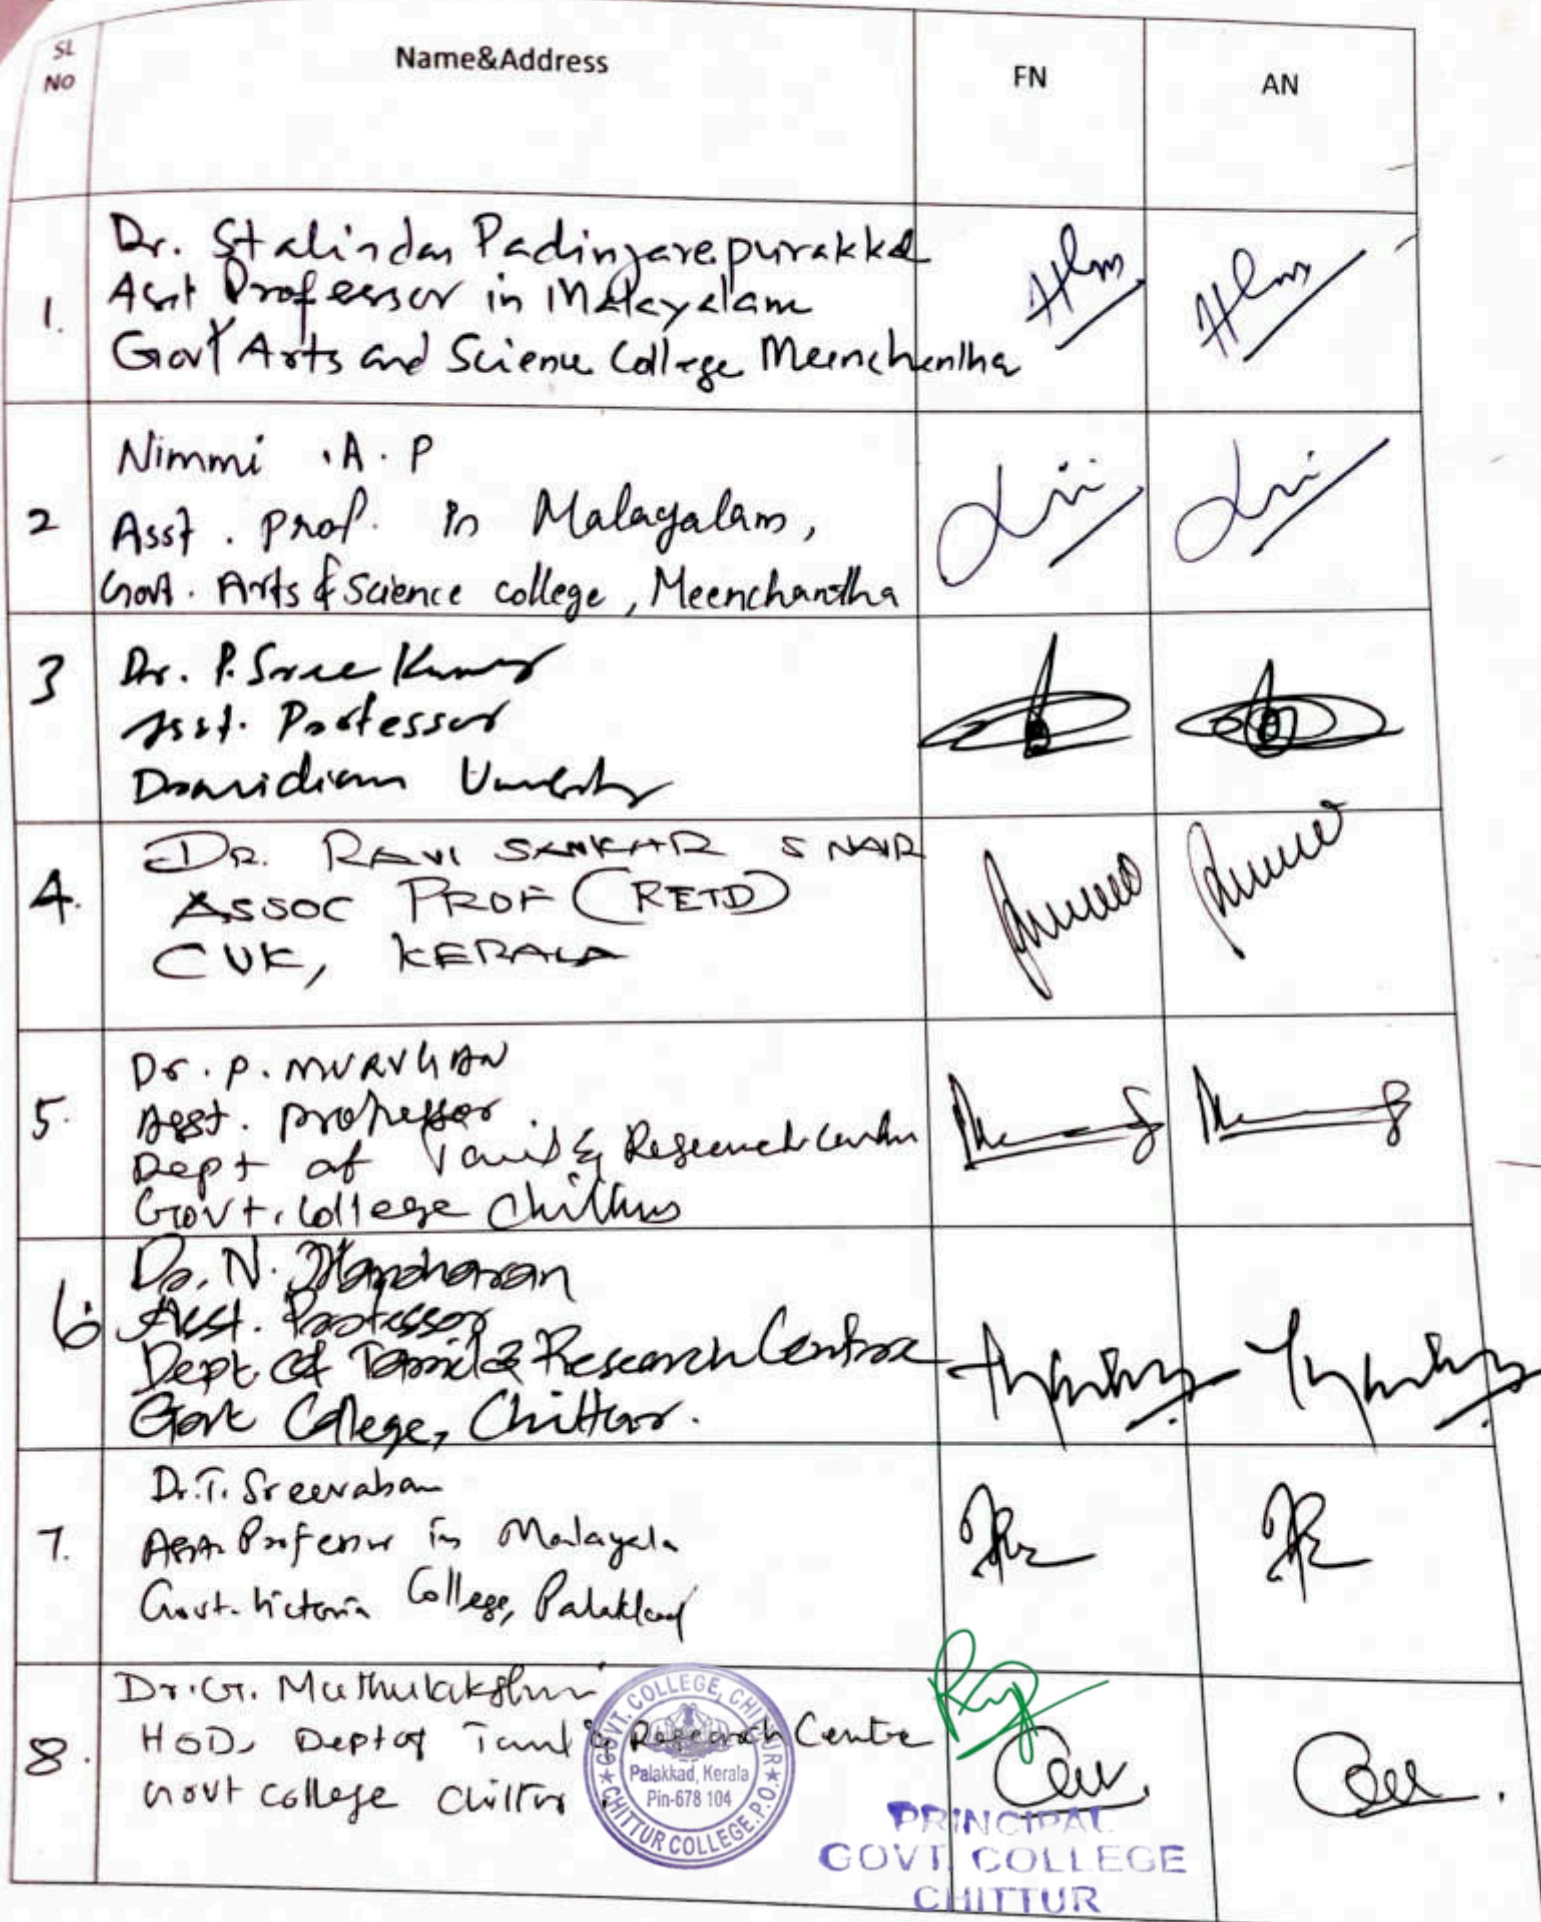 SL NO
Name&Address
FN
AN
1.
Dr. Stalindas Padinjarepurakkal
Asst Professor in Malayalam
Govt Arts and Science College Meenchantha
2
Nimmi .A. P
Asst. Prof. in Malayalam,
Govt. Arts & Science college, Meenchantha
3
Dr. P. Sree Kumar
Asst. Professor
Dravidian University
4.
DR. RAVI SANKAR S NAIR
ASSOC PROF (RETD)
CUK, KERALA
5.
Dr. P. MURUGAN
Asst. professor
Dept of Tamil & Research Centre
Govt. College Chittur
6.
Dr. N. Manoharan
Asst. Professor
Dept. of Tamil & Research Centre
Govt College, Chittur.
7.
Dr. T. Sreevalsan
Asst. Professor in Malayala
Govt. Victoria College, Palakkad
8.
Dr. G. Muthulakshmi
HOD, Dept of Tamil & Research Centre
Govt College Chittur
GOVT. COLLEGE, CHITTUR
Palakkad, Kerala
Pin-678 104
CHITTUR COLLEGE.P.O.
PRINCIPAL
GOVT. COLLEGE
CHITTUR